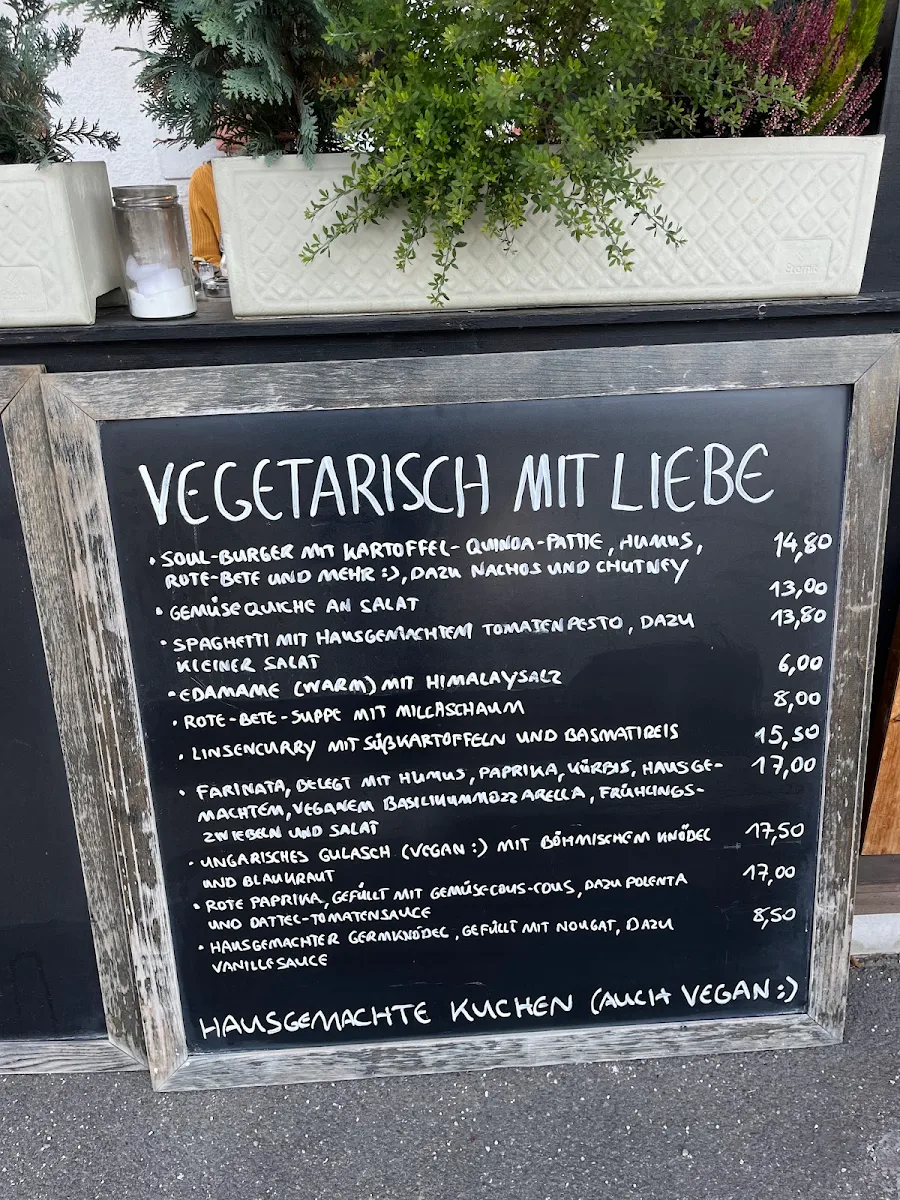 VEGETARISCH MIT LIEBE
• SOUL-BURGER MIT KARTOFFEL-QUINOA-PATTIE, HUMUS, 14,80
ROTE-BETE UND MEHR :), DAZU NACHOS UND CHUTNEY
• GEMÜSEQUICHE AN SALAT 13,00
• SPAGHETTI MIT HAUSGEMACHTEM TOMATENPESTO, DAZU 13,80
KLEINER SALAT
• EDAMAME (WARM) MIT HIMALAYSALZ 6,00
• ROTE-BETE-SUPPE MIT MILCHSCHAUM 8,00
• LINSENCURRY MIT SÜßKARTOFFELN UND BASMATIREIS 15,50
• FARINATA, BELEGT MIT HUMUS, PAPRIKA, KÜRBIS, HAUSGE- 17,00
MACHTEM, VEGANEM BASILIKUMMOZZARELLA, FRÜHLINGS-
ZWIEBELN UND SALAT
• UNGARISCHES GULASCH (VEGAN :) MIT BÖHMISCHEM KNÖDEL 17,50
UND BLAUKRAUT
• ROTE PAPRIKA, GEFÜLLT MIT GEMÜSE-COUS-COUS, DAZU POLENTA 17,00
UND DATTEL-TOMATENSAUCE
• HAUSGEMACHTER GERMKNÖDEL, GEFÜLLT MIT NOUGAT, DAZU 8,50
VANILLESAUCE
HAUSGEMACHTE KUCHEN (AUCH VEGAN :)